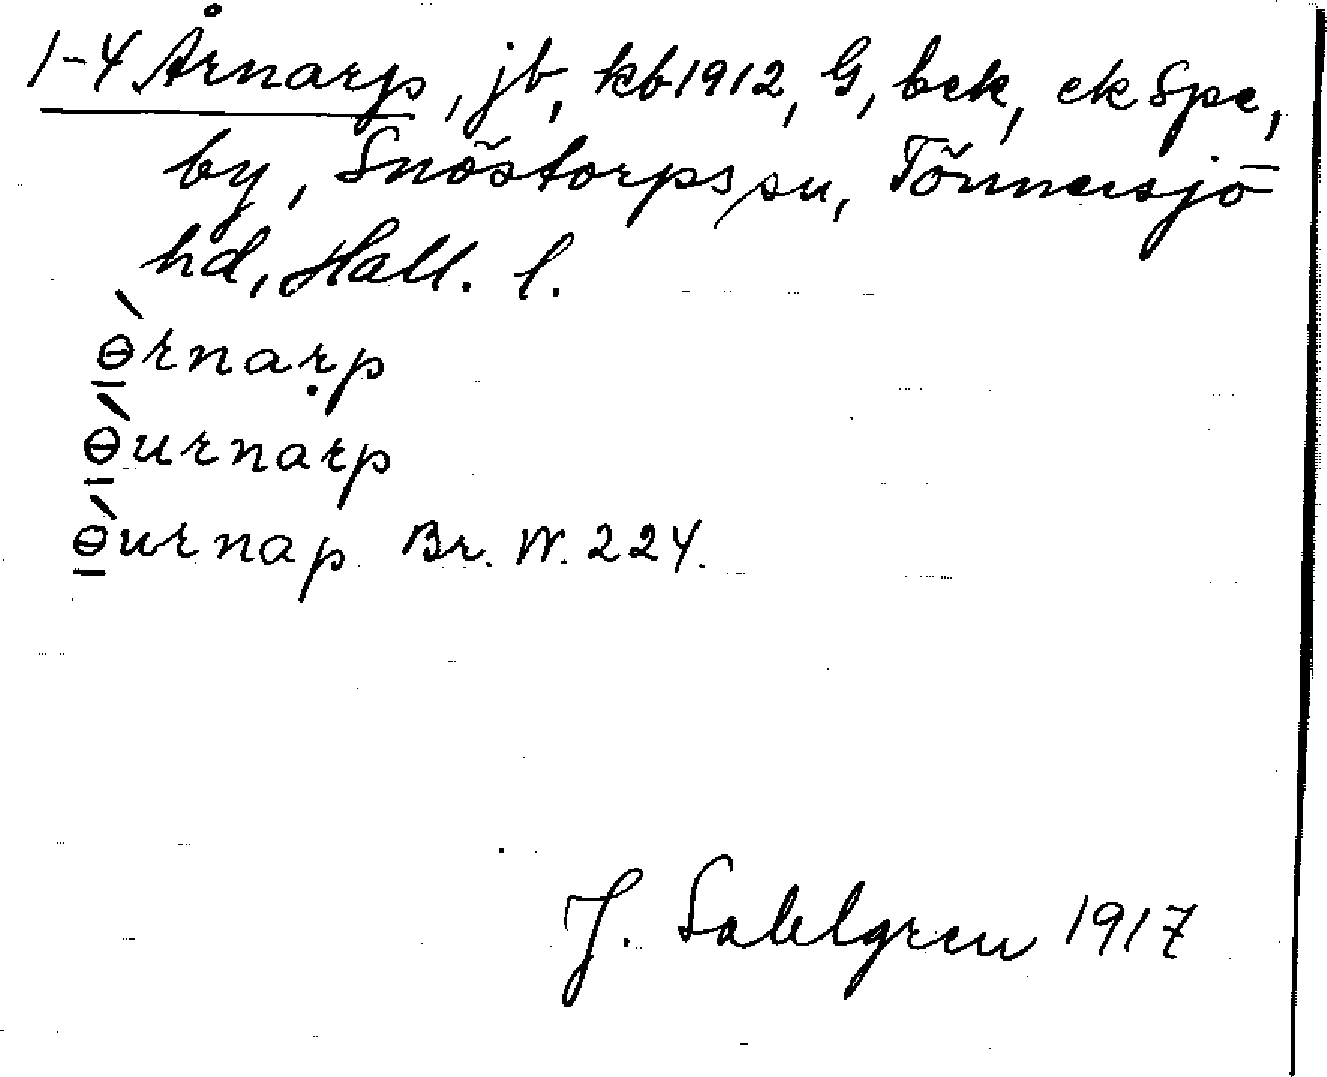 1-4 Årnarp, jb, kb1912, G, bek, ek Spe,
by, Snöstorps sn, Tönnersjö
hd, Hall. l.
ɵ̱̀rnaṛp
ɵ̱̀urnarp
ɵ̱̀urnap Br. W. 224.
J. Sahlgren 1917